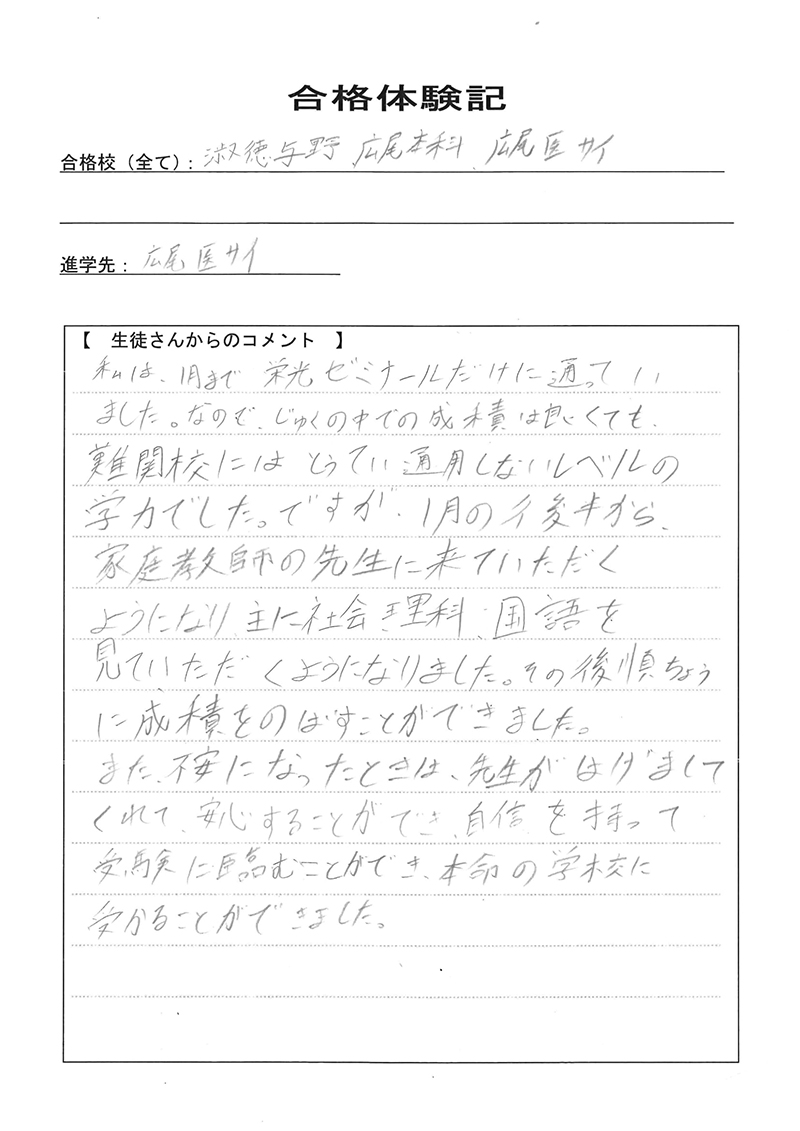 合格体験記
合格校（全て）：淑徳与野、広尾本科、広尾医サイ
進学先：広尾医サイ
【　生徒さんからのコメント　】
私は、1月まで栄光ゼミナールだけに通ってい
ました。なので、じゅくの中での成積は良くても、
難関校にはとうてい通用しないレベルの
学力でした。ですが、1月の後半から、
家庭教師の先生に来ていただく
ようになり、主に社会、理科、国語を
見ていただくようになりました。その後順ちょう
に成積をのばすことができました。
また、不安になったときは、先生がはげまして
くれて、安心することができ、自信を持って
受験に臨むことができ、本命の学校に
受かることができました。